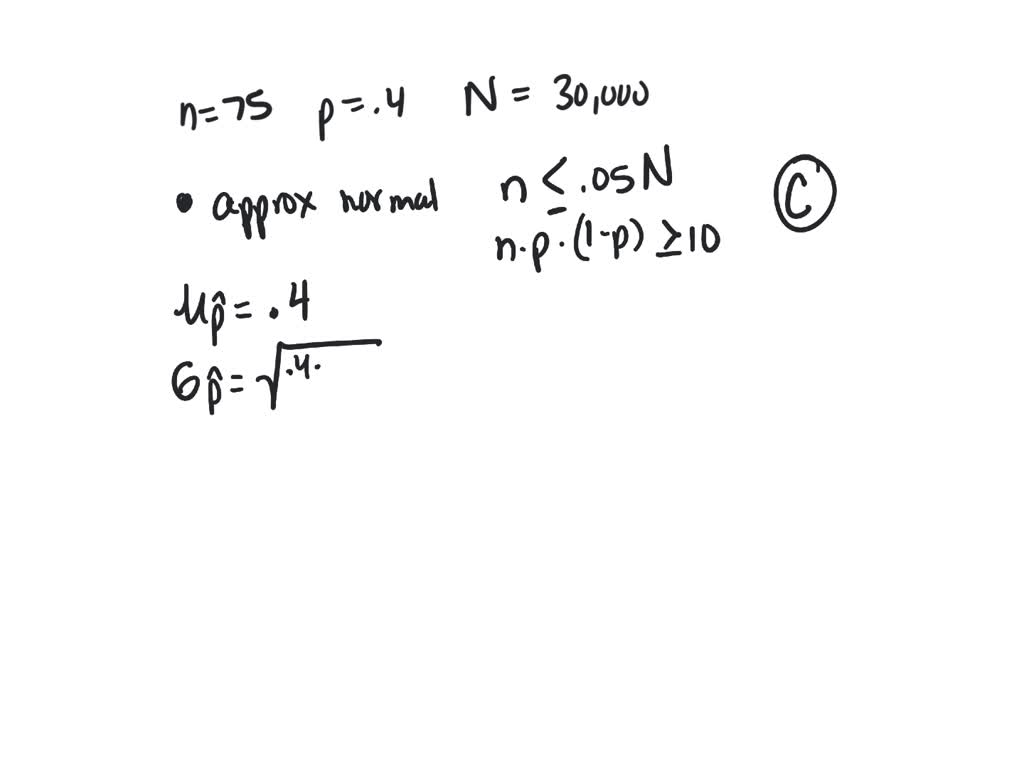 n=75 p=.4 N = 30,000
• approx normal n ≤ .05N
n·p·(1-p) ≥10
C
μp̂ = .4
σp̂ = √.4·